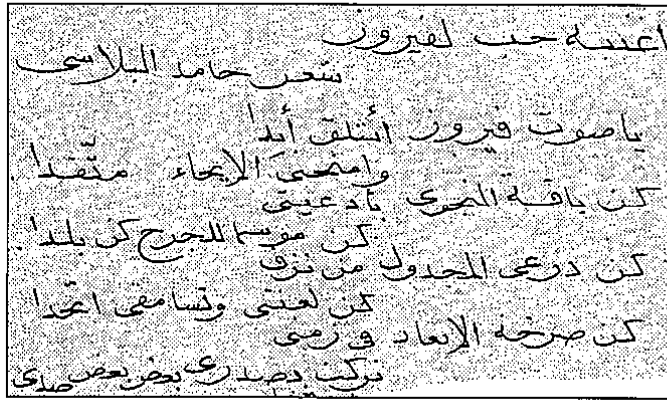 اغنية حب لفيروز
شعر حامد البلاسي
يا صوت فيروز أئتلق أبدا
وامنحني الإيحاء متّقدا
كن باقة النجوى بأدعيتي
كن موسما للجرح كن بلدا
كن درعي المجدول من نزف
كن لغتي وتسامقي اتّحدا
كن صرخة الإبعاد في زمني
تركت بصدري بعض بعض صدى